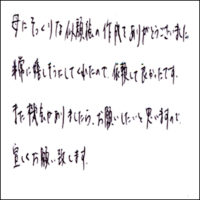 母にそっくりな似顔絵の作成でありがとうございました
本当に嬉しそうにしてくれたので、依頼して良かったです。
また機会がありましたら、お願いしたいと思いますので
宜しくお願い致します。